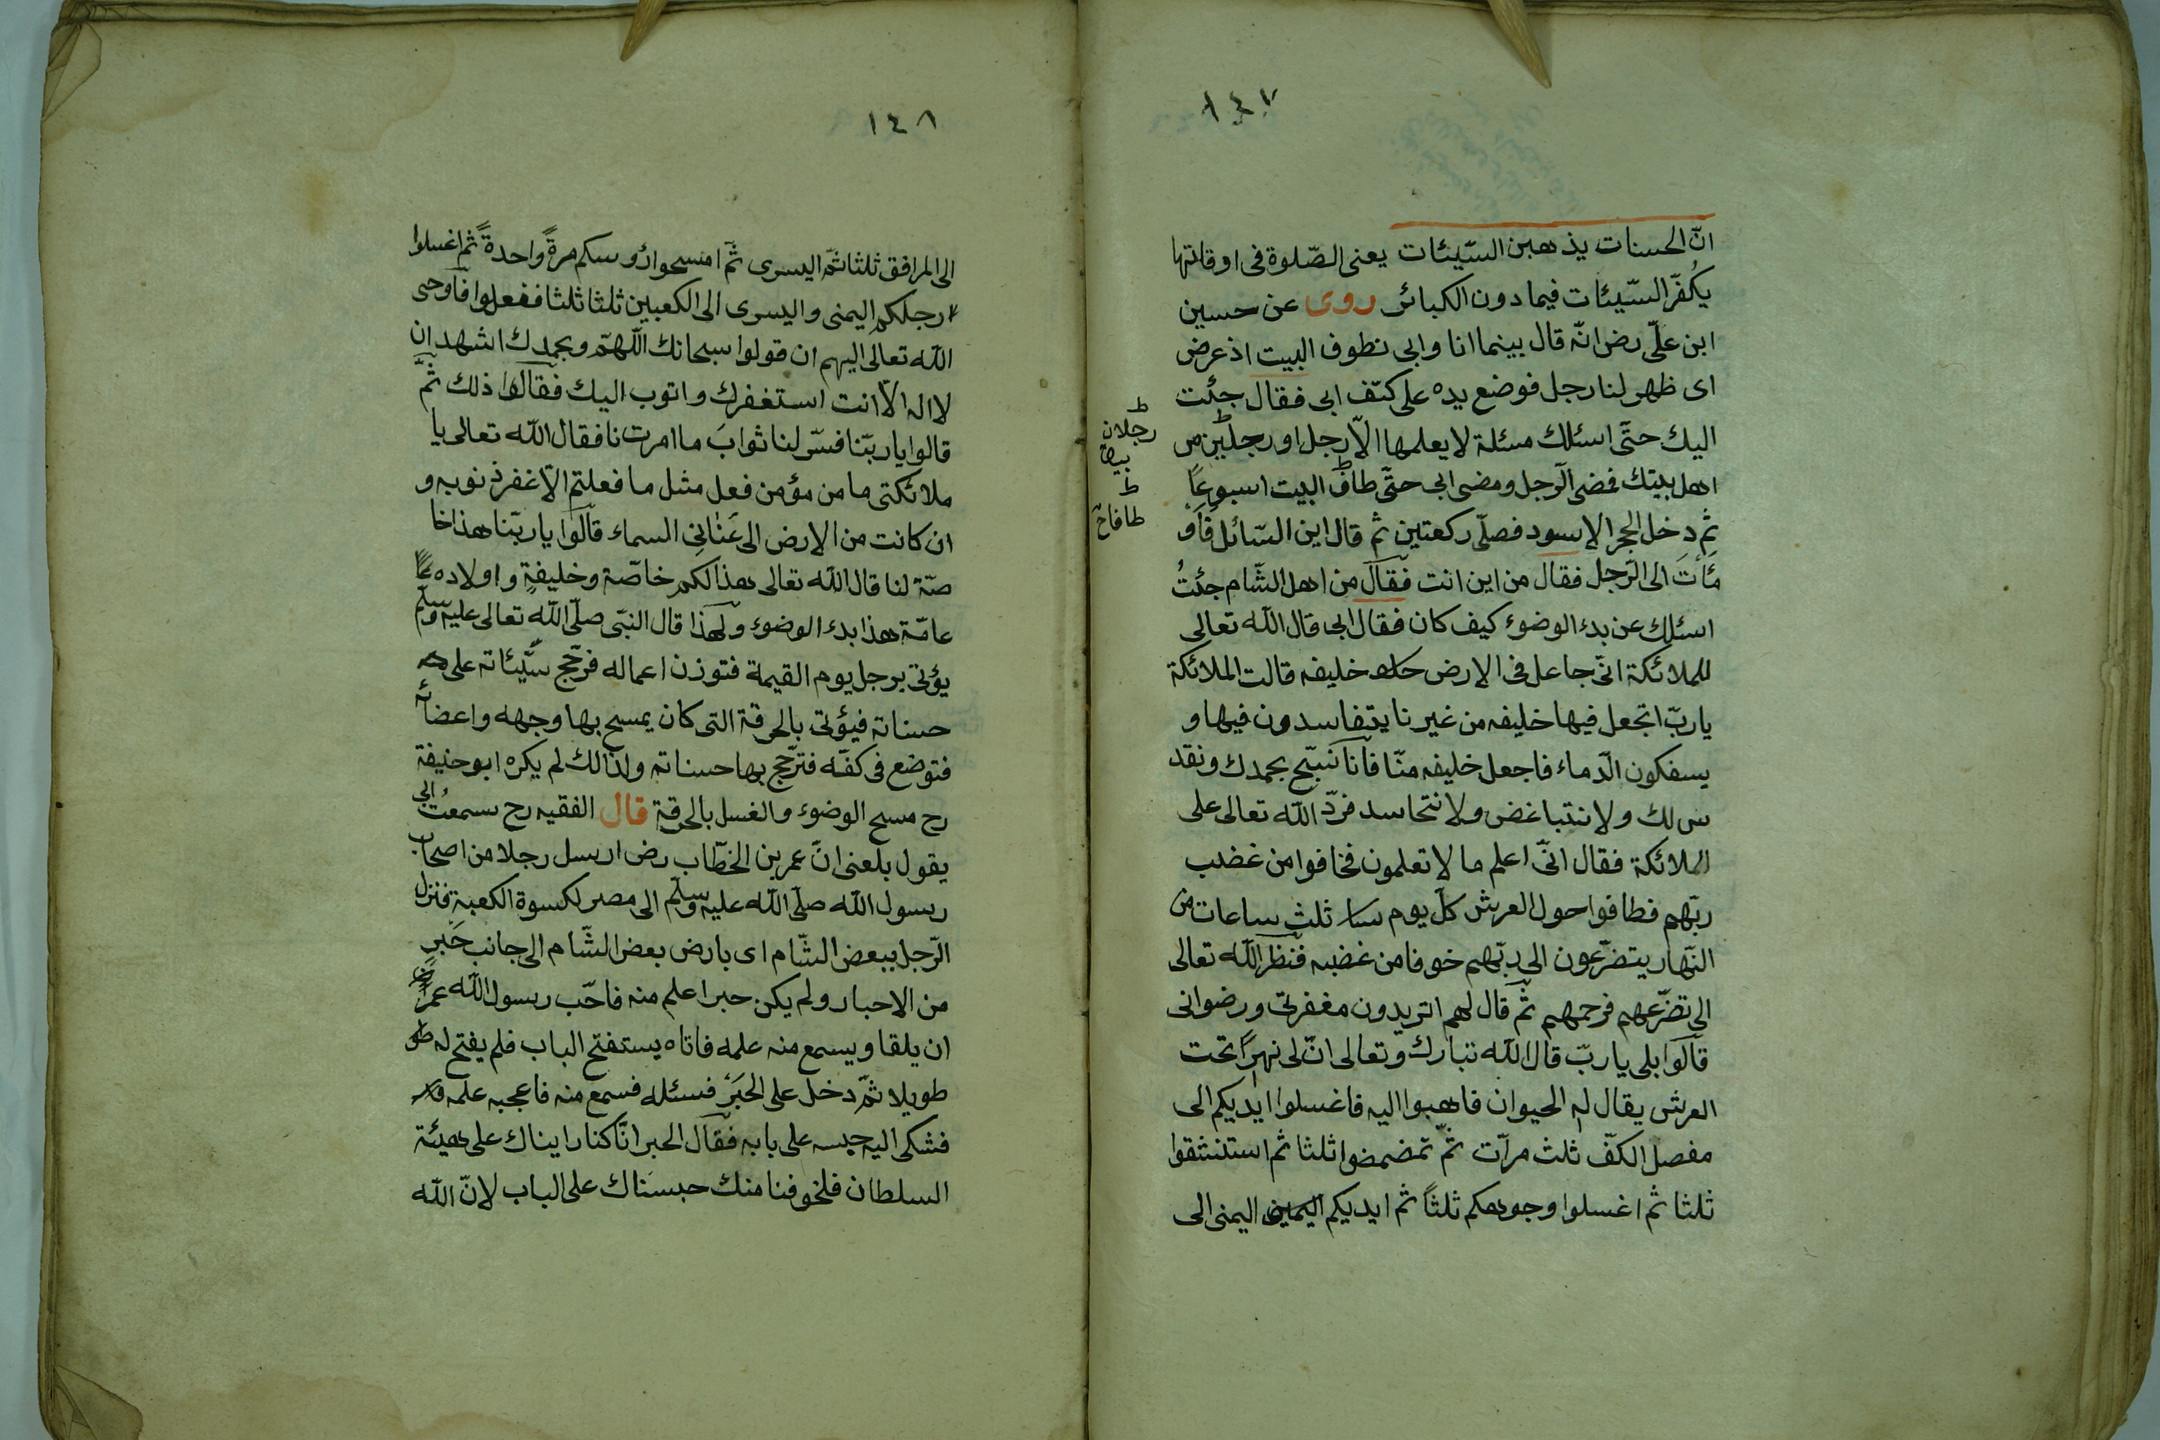 ١٤٧
انّ الحسنات يذهبن السّيئات يعنى الصّلوة فى اوقاتها
يكُفّر السّيئات فيما دون الكبائر روى عن حسين
ابن علىّ رض انّه قال بينما انا وابى نطوف البيت اذ عرض
اى ظهر لنا رجل فوضع يده على كتف ابى فقال جئت
اليك حتّى اسئلك مسئلة لا يعلمها الّا رجل او رجلين من
اهل بيتك فضى الرّجل ومضى ابى حتّى طاف البيت اسبوعًا
ثم دخل الحجر الاسود فصلّى ركعتين ثم قال اين السّائل فاو
مَأتَ الى الرّجل فقال من اين انت فقال من اهل الشّام جئتُ
اسئلك عن بدء الوضوء كيف كان فقال ابى قال الله تعالى
للملائكة انّى جاعل فى الارض خليفه قالت الملائكة
يا ربّ اتجعل فيها خليفه من غيرنا يتفاسدون فيها و
يسفكون الدّماء فاجعل خليفه منّا فانا نسبّح بحمدك ونقد
س لك ولا نتباغض ولا نتحاسد فردّ الله تعالى على
الملائكة فقال انّى اعلم ما لا تعلمون فخافوا من غضب
ربّهم فطافوا حول العرش كلّ يوم ثلث ساعات من
النّهار يتضرّعون الى ربّهم خوفا من غضبه فنظر الله تعالى
الى تضرّعهم فرحمهم ثمّ قال لهم اتريدون مغفرتى ورضوانى
قالوا بلى يا ربّ قال الله تبارك وتعالى انّ لى نهرًا تحت
العرش يقال له الحيوان فاهبوا اليه فاغسلوا ايديكم الى
مفصل الكفّ ثلث مرآت ثمّ تمضمضوا ثلثا ثم استنشقوا
ثلثا ثم اغسلوا وجوهكم ثلثاً ثم ايديكم اليمنى الى
رجلان
طافا
١٤٨
الى المرافق ثلثا ثمّ اليسرى ثمّ امسحوا رؤسكم مرةً واحدةً ثم اغسلوا
ارجلكم اليمنى واليسرى الى الكعبين ثلثا ثلثا ففعلوا فاوحى
الله تعالى اليهم ان قولوا سبحانك اللّهمّ وبحمدك اشهد ان
لا اله الّا انت استغفرك واتوب اليك فقالوا ذلك ثمّ
قالوا يا ربّنا فسّر لنا ثوابَ ما امرتنا فقال الله تعالى يا
ملائكتى ما من مؤمن فعل مثل ما فعلتم الّا غفر ذنوبه و
ان كانت من الارض الى عَنَانِى السماء قالوا يا ربّنا هذا خا
صّة لنا قال الله تعالى هذا لكم خاصّة وخليفةٍ واولاده
عامّة هذا بدء الوضوء ولهذا قال النبّى صلّى الله تعالى عليه وسلّم
يؤتى برجل يوم القيمة فتوزن اعماله فرجّح سّيئاته على
حسناته فيؤتى بالخرقة التى كان يمسح بها وجهه واعضائه
فتوضع فى كفّه فترجّح بها حسناته ولذالك لم يكره ابوحنيفة
رح مسح الوضوء والغسل بالخرقة قال الفقيه رح سمعتُ ابى
يقول بلغنى انّ عمر بن الخطّاب رض ارسل رجلا من اصحاب
رسول الله صلّى الله عليه وسلّم الى مصر لكسوة الكعبة فنزل
الرّجل ببعض الشّام اى بارض بعض الشّام الى جانب حَبرٍ
من الاحبار ولم يكن حبرا علم منه فاحّب رسول الله عمر رض
ان يلقا ويسمع منه علمه فاتاه يستفتح الباب فلم يفتح له
طويلا ثمّ دخل على الحَبَر فسئله فسمع منه فاعجبه علمه
فشكى اليه حبسه على بابه فقال الحبر انّا كنا رايناك على هيئة
السلطان فلخوفنا منك حبسناك على الباب لانّ الله